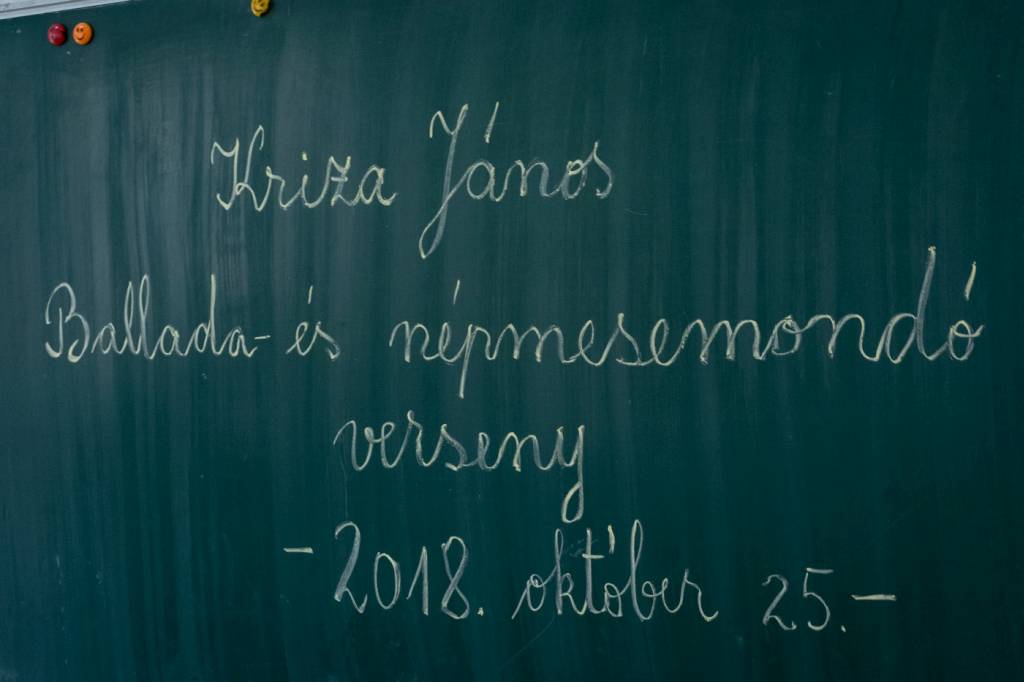 Kriza János
Ballada- és népmesemondó
verseny
- 2018. október 25. -